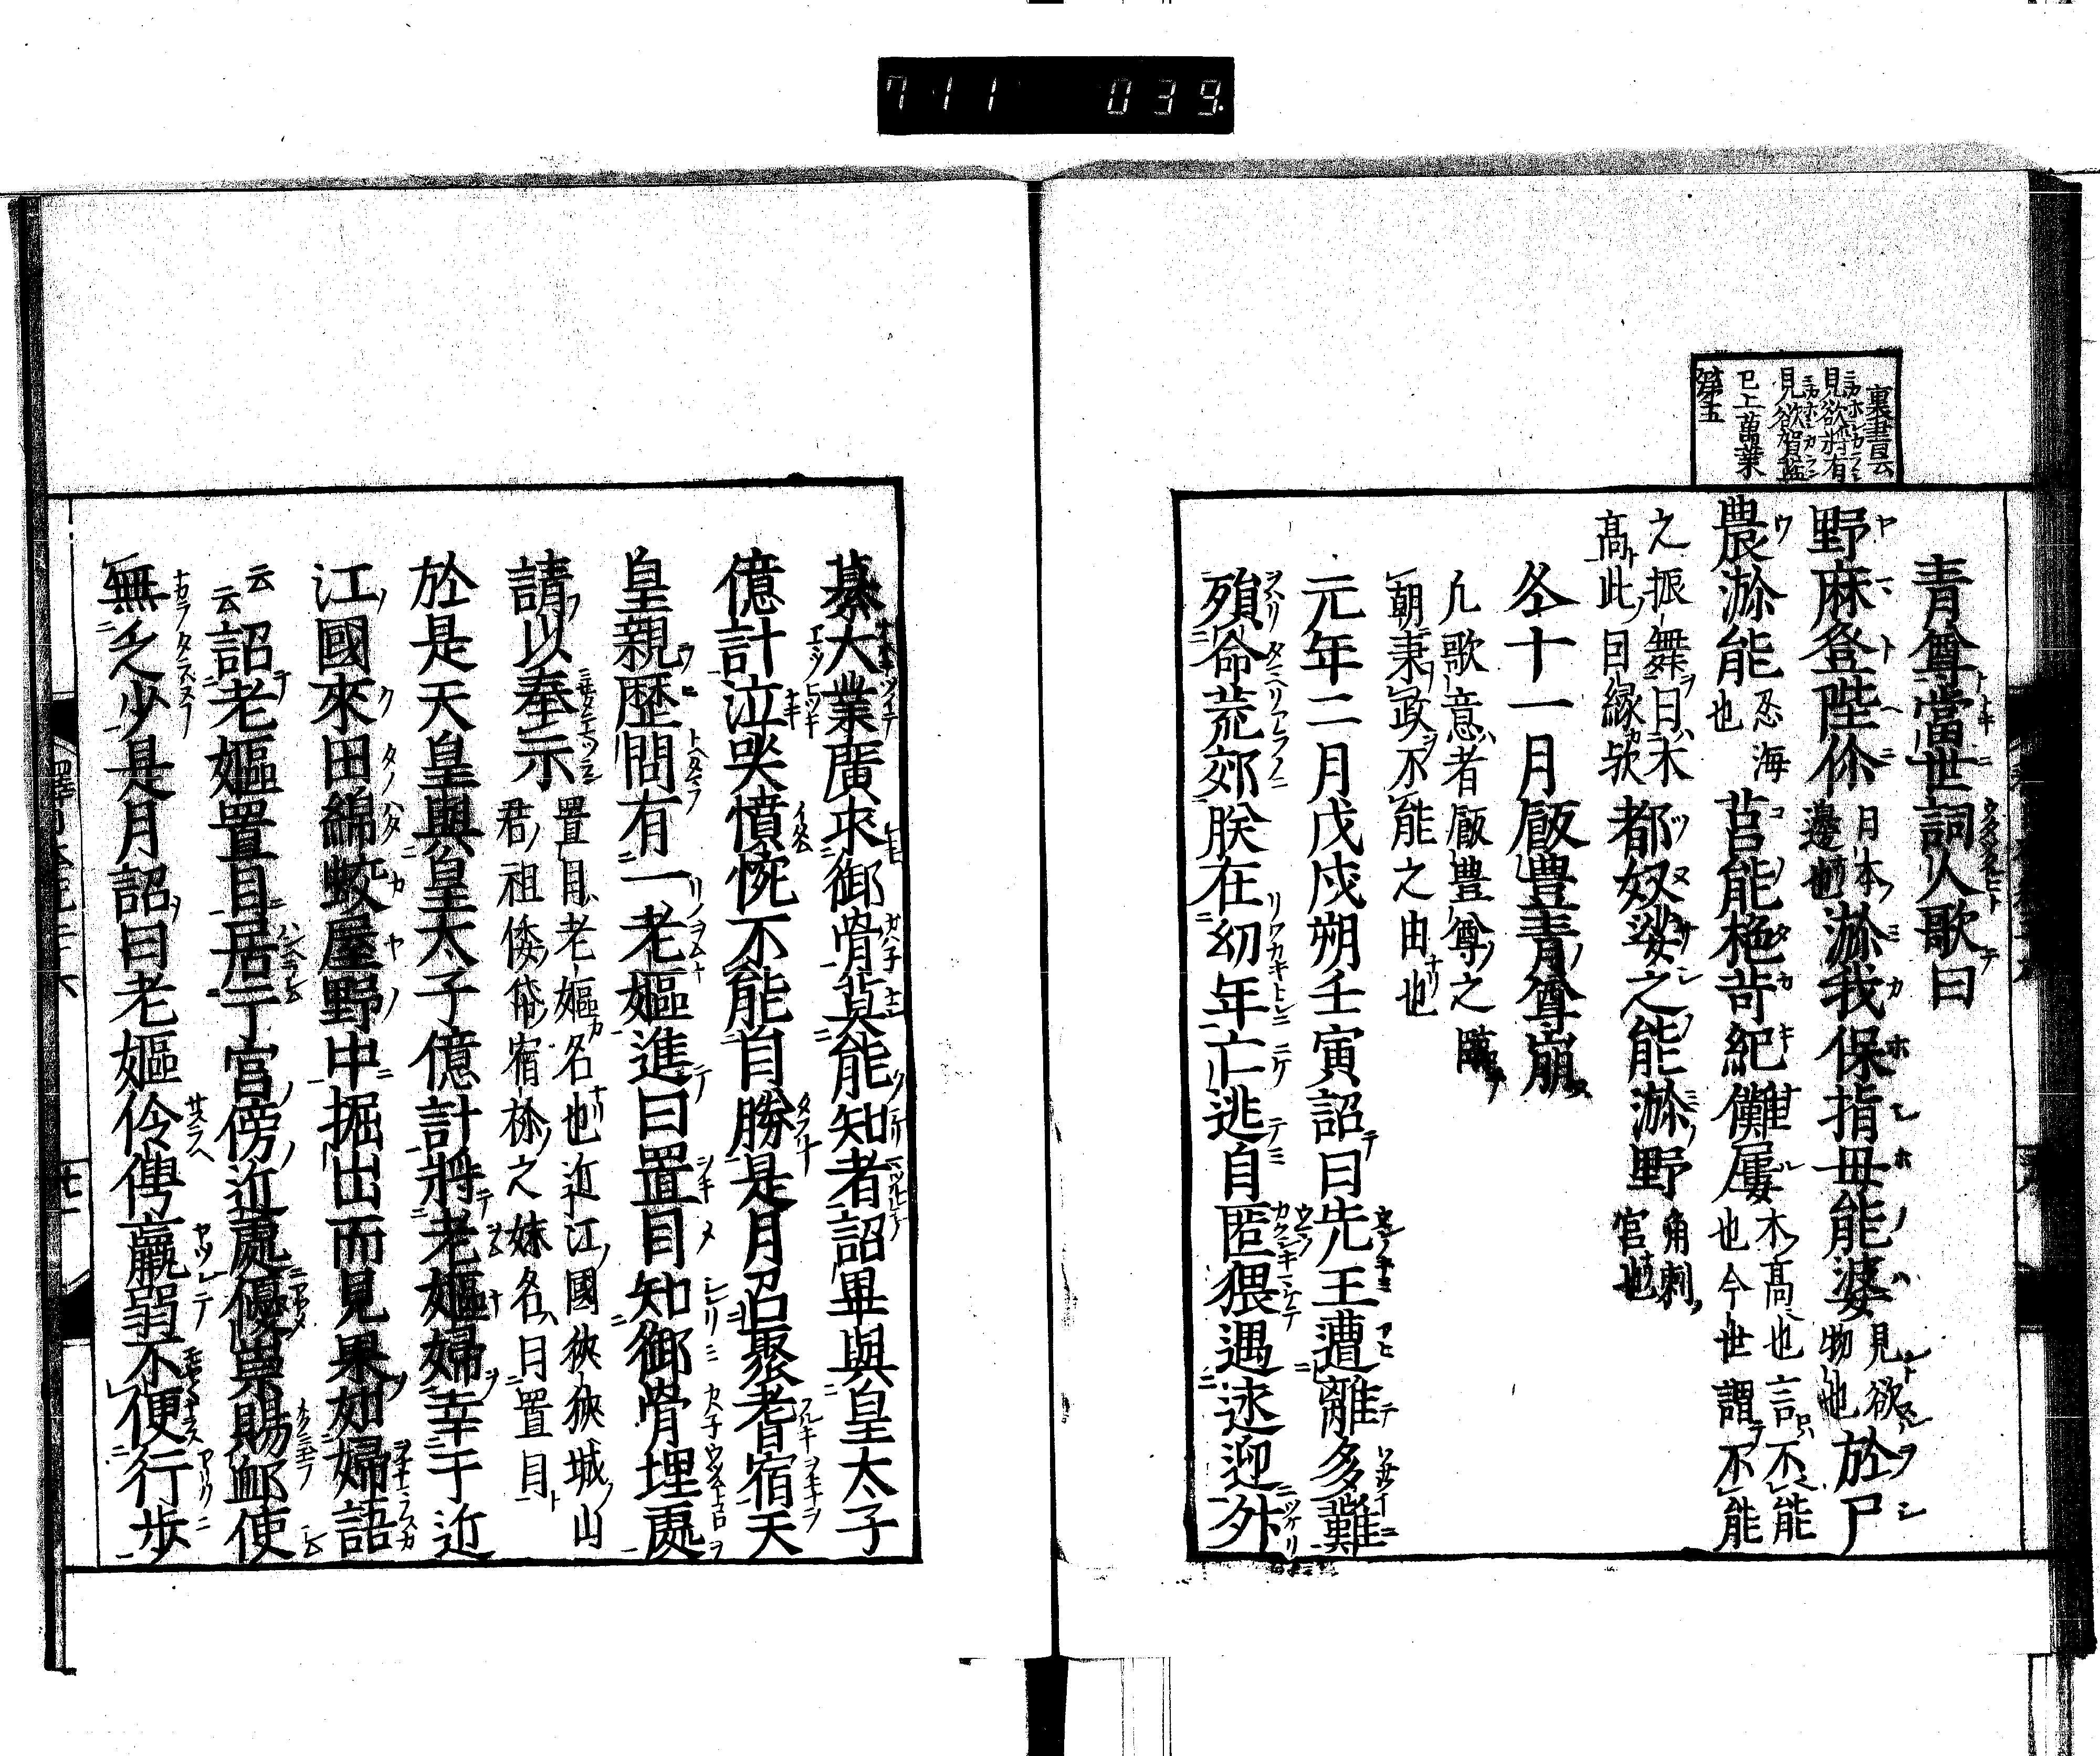 711 039
裏書云
見欲将有
見欲賀藍
已上萬葉
第五
青尊當世詞人歌曰
野麻登陛㑱日本邊也瀰我保指母能婆見欲物也於尸
農瀰能忍海也莒能柂哿紀儺屢木高也言不能也今世謂不能
之振舞曰木高此目縁欤都奴娑之能瀰野角刺宮也
冬十一月飯豊青尊崩
凡歌意者飯豊尊之臨
朝秉政不能之由也
元年二月戊戌朔壬寅詔曰先王遭離多難
殞命荒郊朕在幼年亡逃自匿猥遇逑迎外
纂大業廣求御骨莫能知者詔畢與皇太子
億計泣哭憤惋不能自勝是月召聚耆宿天
皇親歴問有一老嫗進曰置目知御骨埋處
請以奉示置目老嫗名也近江國狹狹城山君祖倭帒宿祢之妹名曰置目
於是天皇與皇太子億計將老嫗婦幸于近
江國來田綿蛟屋野中掘出而見果如婦語
云云詔老嫗置目居于宮傍近處優崇賜䘏使
無乏少是月詔曰老嫗伶俜羸弱不便行歩